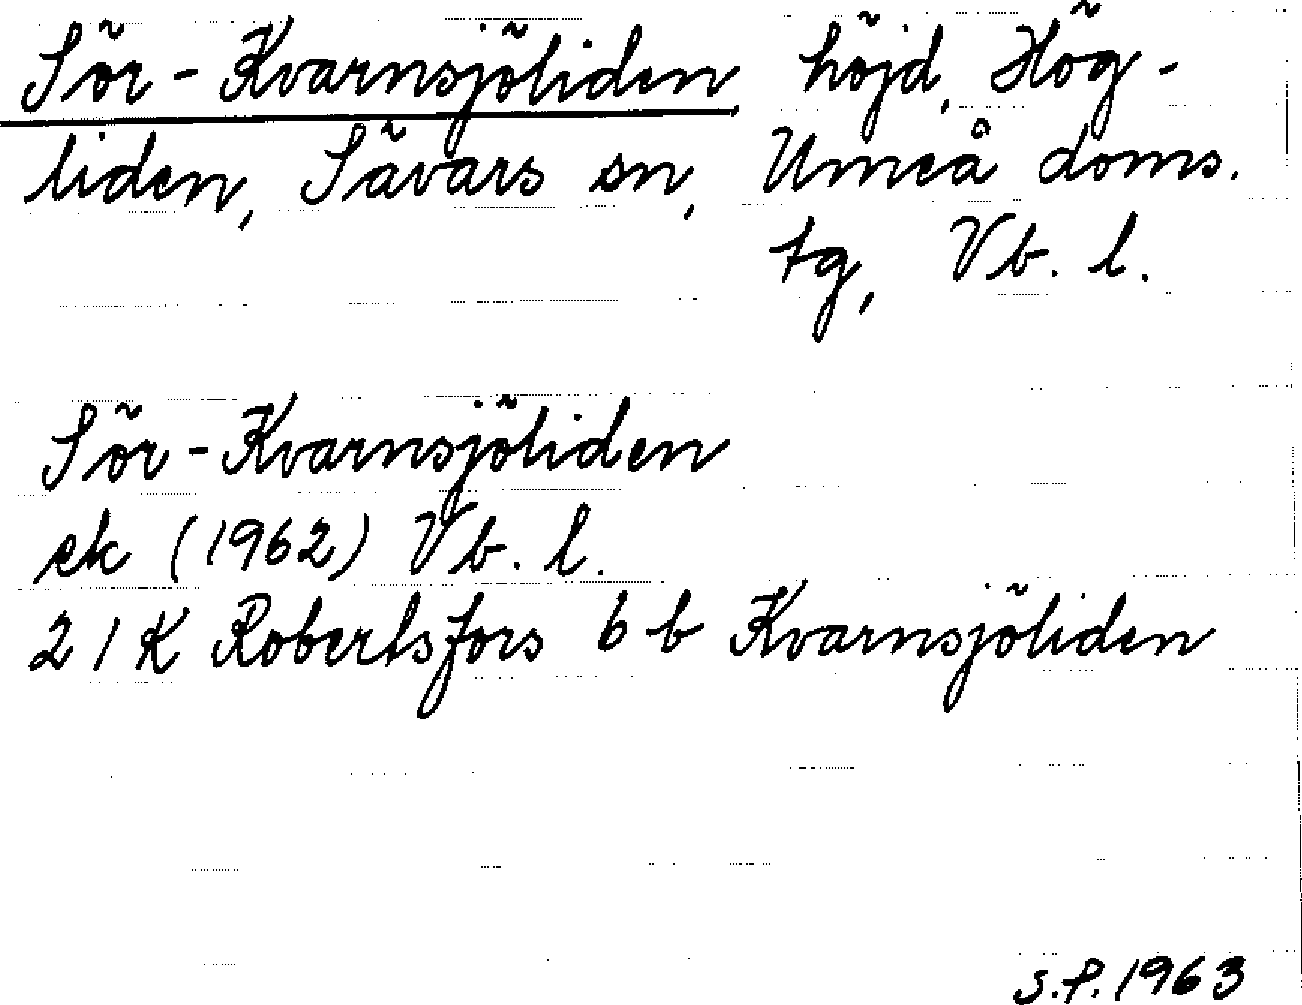 Sör-Kvarnsjöliden, höjd, Hög-
liden, Sävars sn, Umeå doms.
tg, Vb. l.
Sör-Kvarnsjöliden
ek (1962) Vb. l.
21K Robertsfors 6b Kvarnsjöliden
S.P. 1963